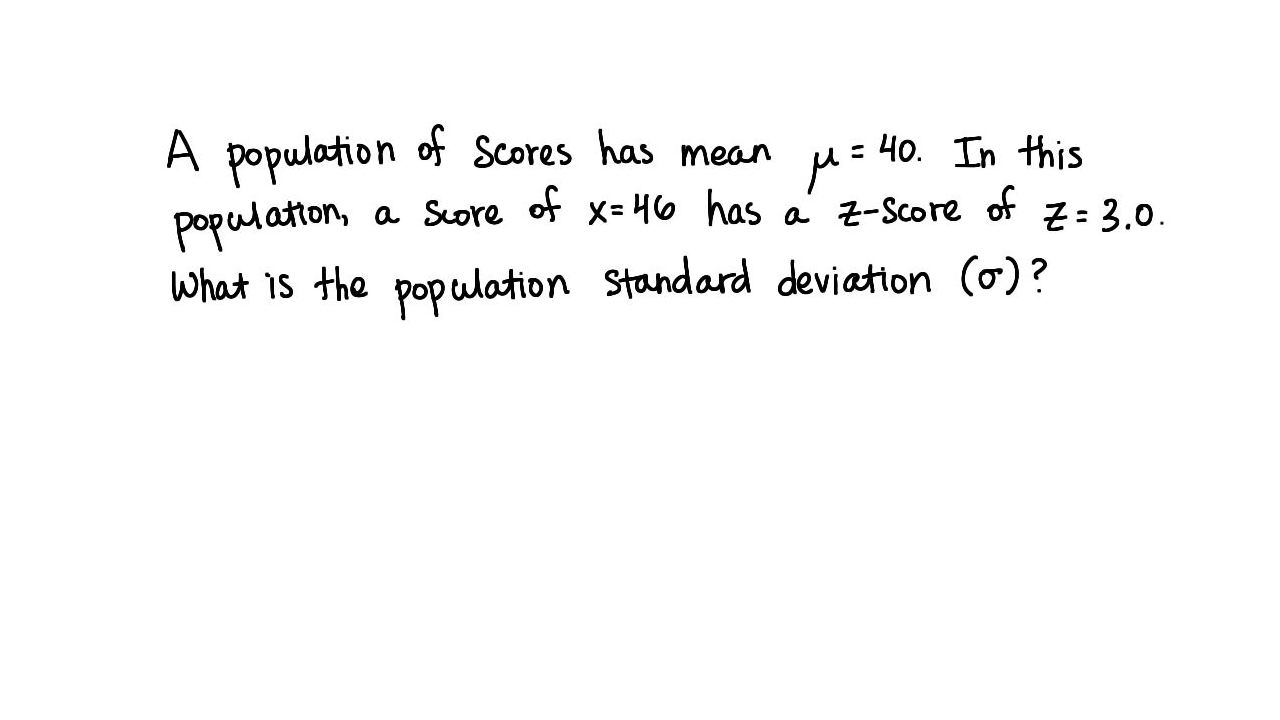 A population of scores has mean μ = 40. In this
population, a score of x=46 has a z-score of z = 3.0.
What is the population standard deviation (σ)?